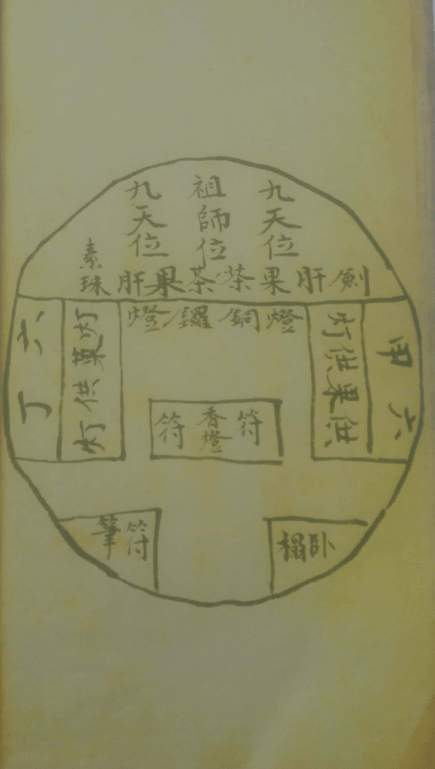 九天位
祖師位
九天位
劍肝果茶茶果肝素珠
燈銅鑼燈
六甲
灯供果供
符
香燈
符
灯菓供灯
六丁
卧榻
符筆